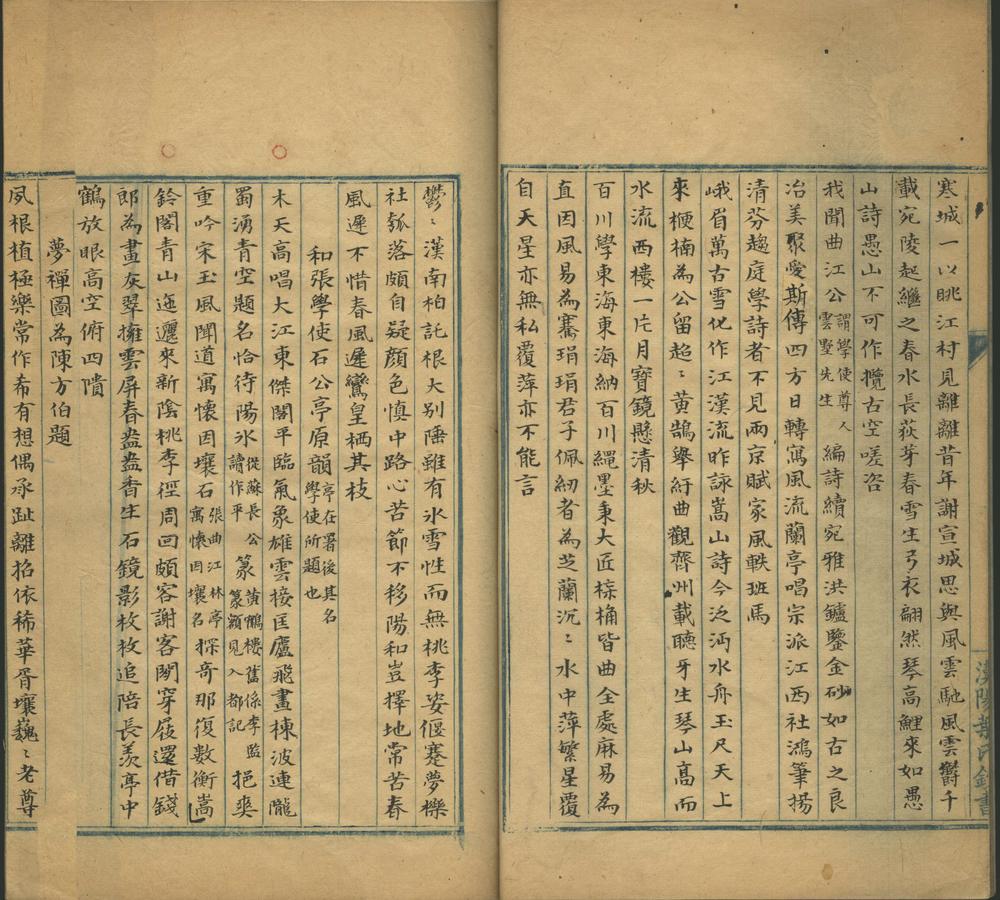 寒城一以眺江村見離離昔年謝宣城思與風雲馳風雲鬱千
載宛陵起繼之春水長荻芽春雪生弓衣翩然琴高鯉來如愚
山詩愚山不可作攬古空嗟咨
我聞曲江公謂學使尊人雲墅先生編詩續宛雅洪鑪鑒金砂如古之良
冶美聚愛斯傳四方日轉寓風流蘭亭唱宗派江西社鴻筆揚
清芬趨庭學詩者不見兩京賦家風軼班馬
峨眉萬古雪化作江漢流昨詠嵩山詩今泛沔水舟玉尺天上
來楩楠為公留超〻黃鵠舉紆曲觀齊州載聽牙生琴山高而
水流西樓一片月寶鏡懸清秋
百川學東海東海納百川繩墨秉大匠榱桷皆曲全處麻易為
直因風易為騫琄琄君子佩紉者為芝蘭沉〻水中萍繁星覆
自天星亦無私覆萍亦不能言
漢陽葉氏鈔書
鬱〻漢南柏託根大別陲雖有氷雪性而無桃李姿偃蹇夢櫟
社瓠落頗自疑顏色慎中路心苦節不移陽和豈擇地常苦春
風遲不惜春風遲鸞皇栖其枝
和張學使石公亭原韻亭在署後其名學使所題也
木天高唱大江東傑閣平臨氣象雄雲接匡廬飛畫棟波連隴
蜀湧青空題名恰待陽氷從蘇長公讀作平篆黃鶴樓舊係李監篆額見入都記挹奭
重吟宋玉風聞道寓懷因壤石張曲江林亭寓懷因壤名探奇那復數衡嵩
鈴閣青山迤邐來新陰桃李徑周回頗容謝客閒穿屐還借錢
郎為畫灰翠擁雲屏春盎盎香生石鏡影枚枚追陪長羨亭中
鶴放眼高空俯四隤
夢禪圖為陳方伯題
夙根植極樂常作希有想偶承趾離招依稀華胥壤巍〻老尊